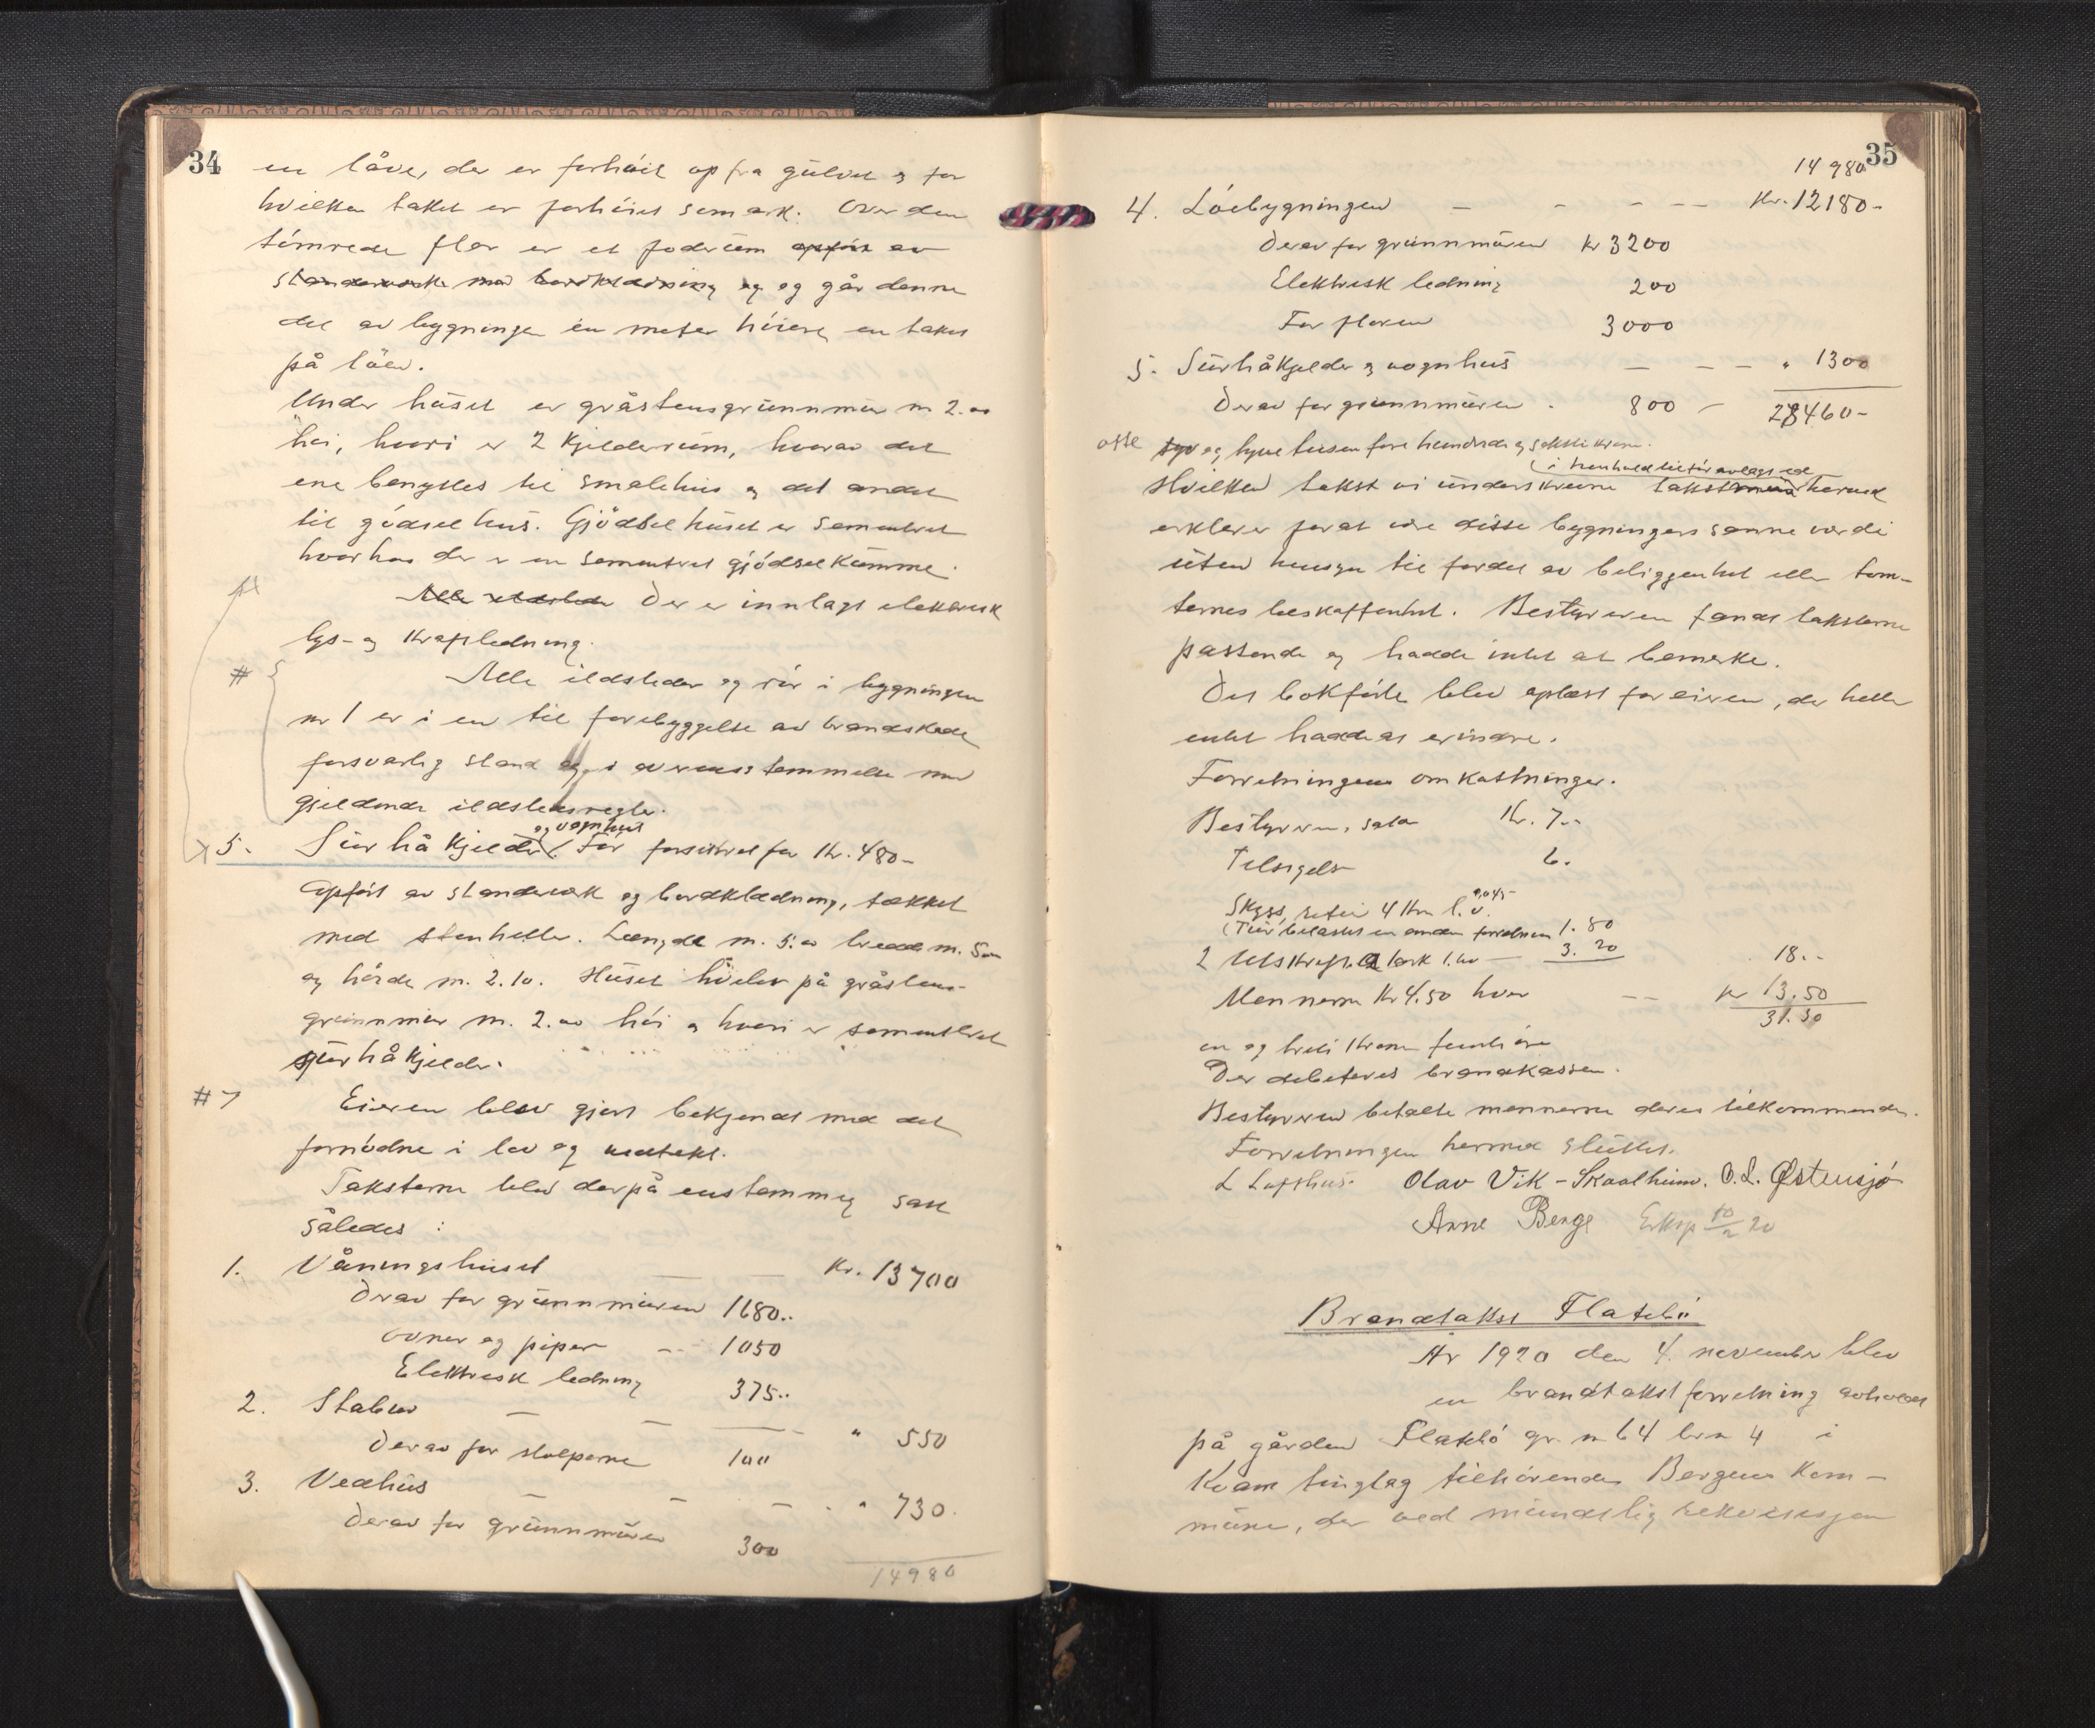 34
en låve, der er forhöiet op fra gulvet og for
hvilken taket er forhöiet som ark. Over den
tömrede flor er et foderum opfört av
standerverk med bordklædning og og går denne
del av bygningen en meter höiere en taket
på löen.
Under huset er gråstensgrunnmur m 2.00
höi, hvori er 2 Kjelderrum, hvorav det
ene benyttes til smalehus og det andet
til gödselhus. Gjödselhuset er sementeret
hvorhos der er en sementeret gjödselkumme.
Alle ildsteder Der er innlagt elektrisk
lys- og kraftledning.
# Alle ildsteder og rör i bygningen
nr 1 er i en til forebyggelse av brandskade
forsvarlig stand og i overensstemmelse med
gjeldende ildstedsregler.
og vognhus
5. Surhåkjelder. För forsikret for Kr. 480-
Opfört av standerverk og bordklædning, tækket
med stenheller. Længde m. 5.00 bredde m. 5.00
og höide m. 2.10. Huset hviler på gråstens-
grunnmur m. 2.00 höi og hvori er sementeret
surhåkjelder.
# Eieren blev gjort bekjendt med det
fornödne i lov og vedtekt.
Taksterne blev derpå enstemmig sat
således:
1. Våningshuset — — Kr. 13700
Derav for grunnmuren 1680..
ovner og piper -- 1050
Elektrisk ledning 375..
2. Stabur — — — - " 550
Derav for stolperne 100
3. Vedhus — - — - " 730.
Derav for grunnmuren 300
14980
35
14980
4. Löebygningen — - - -- Kr. 12180-
Derav for grunnmuren Kr 3200
Elektrisk ledning 200
For floren 3000
5. Surhåkjelder og vognhus — - — " 1300
Derav for grunnmuren . 800 — 28460-
otte
syv og tyve tusen fire hundrede og seksti kroner.
i henhold til för avlagt ed
Hvilken takst vi underskrevne takstmænd herved
erklærer for at være disse bygningers sanne værdi
uten hensyn til fordel av beliggenhet eller tom-
ternes beskaffenhet. Bestyreren fandt taksterne
passende og hadde intet at bemerke.
Det bokförte blev oplæst for eieren, der heller
intet hadde at erindre.
Forretningens omkostninger.
Bestyreren, salær Kr. 7.-
Tilsigelse 6.
0,045-
Skyss, retur 4 Km l.v.
(Tur belastet en anden forretning 1.80
2 Utskrifter 2 ark 1.60 — 3.20 18.-
Mennerne Kr 4.50 hver -- Kr 13.50
31.50
en og treti Kroner femti öre
Der debiteres brandkassen.
Bestyreren betalte mennerne deres tilkommende.
Forretningen hermed sluttet.
L Lofthus. Olav Vik - Skaalheim. O. L. Østensjö
Arne Berge Eksp 10/2 20
Brandtakst Flatebö
År 1920 den 4. november blev
en brandtakstforretning avholdt
på gården Flatebö gr. n 64 br. n 4 i
Kvam tinglag tilhörende Bergens Kom-
mune, der ved mundtlig rekvisisjon